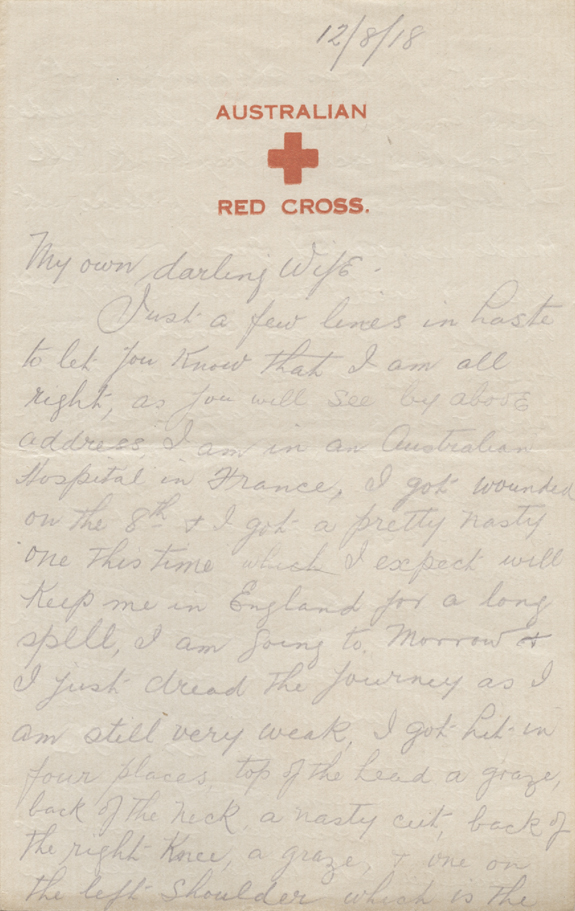 12/8/18
AUSTRALIAN
RED CROSS.
My own darling Wife.
Just a few lines in haste
to let you know that I am all
right, as you will see by above
address, I am in an Australian
Hospital in France, I got wounded
on the 8th & I got a pretty nasty
one this time which I expect will
keep me in England for a long
spell, I am going to Morrow &
I just dread the journey as I
am still very weak, I got hit in
four places, top of the head a graze,
back of the neck a nasty cut, back of
the right Knee, a graze, & one on
the left shoulder which is the